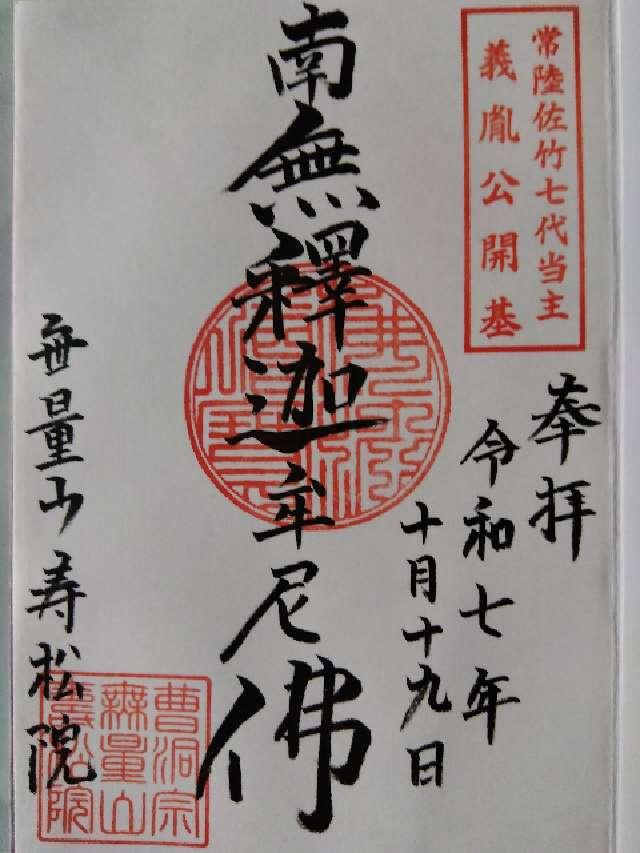 常陸佐竹七代当主
義胤公開基
奉拝
令和七年
十月十九日
南無釋迦牟尼佛
無量山寿松院
曹洞宗
無量山